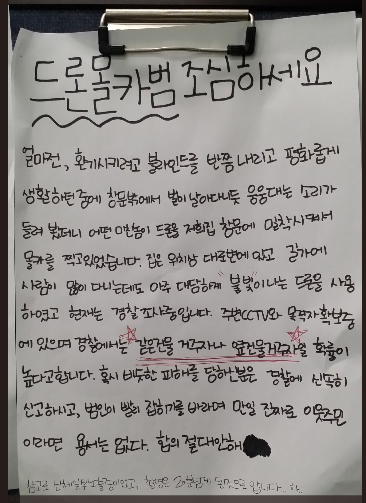 드론몰카범 조심하세요
얼마전, 환기시키려고 블라인드를 반쯤 내리고 평화롭게
생활하던중에 창문밖에서 벌이 날아다니듯 웅웅대는 소리가
들려 봤더니 어떤 미친놈이 드론을 저희집 창문에 밀착시켜서
몰카를 찍고있었습니다. 집은 위치상 대로변에 있고 강가에
사람이 많이 다니는데도 아주 대담하게 "불빛"이나는 드론을 사용
하였고 현재는 경찰 조사중입니다. 주변CCTV와 목격자확보중
에 있으며 경찰에서는 같은건물 거주자나 옆건물거주자일 확률이
높다고합니다. 혹시 비슷한 피해를 당하신분은 경찰에 신속히
신고하시고, 범인이 빨리 잡히기를 바라며 만일 진짜로 이웃주민
이라면 용서는 없다. 합의 절대안해